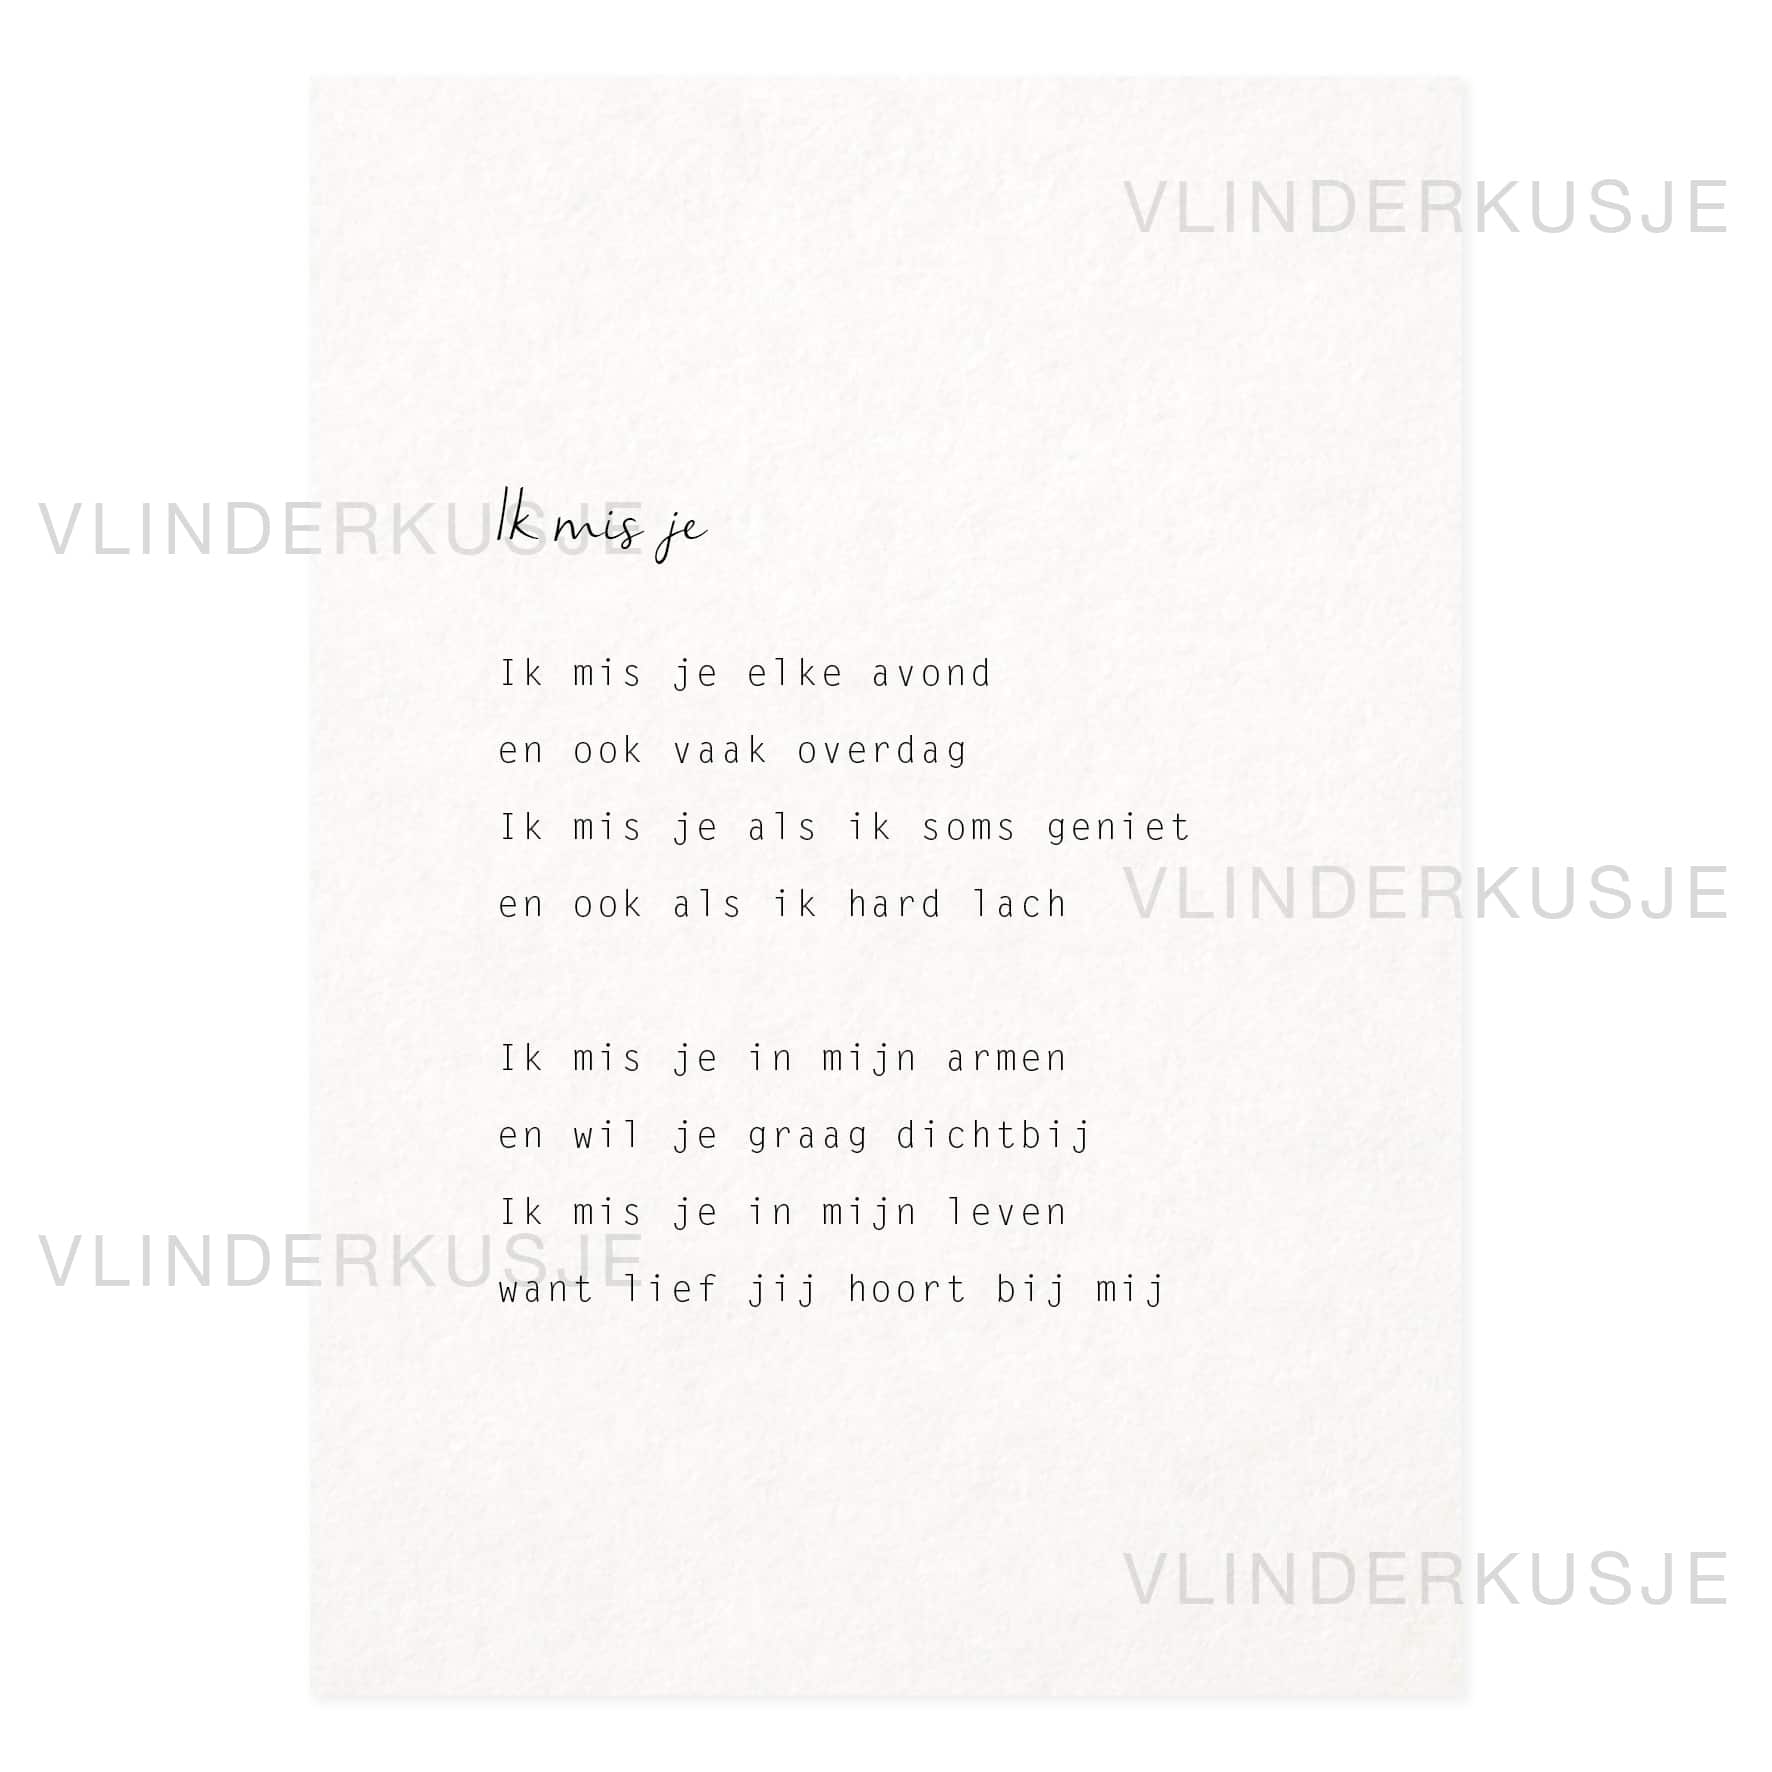 VLINDERKUSJE
VLINDERKUSJE
Ik mis je
Ik mis je elke avond
en ook vaak overdag
Ik mis je als ik soms geniet
en ook als ik hard lach
VLINDERKUSJE
Ik mis je in mijn armen
en wil je graag dichtbij
Ik mis je in mijn leven
VLINDERKUSJE
want lief jij hoort bij mij
VLINDERKUSJE